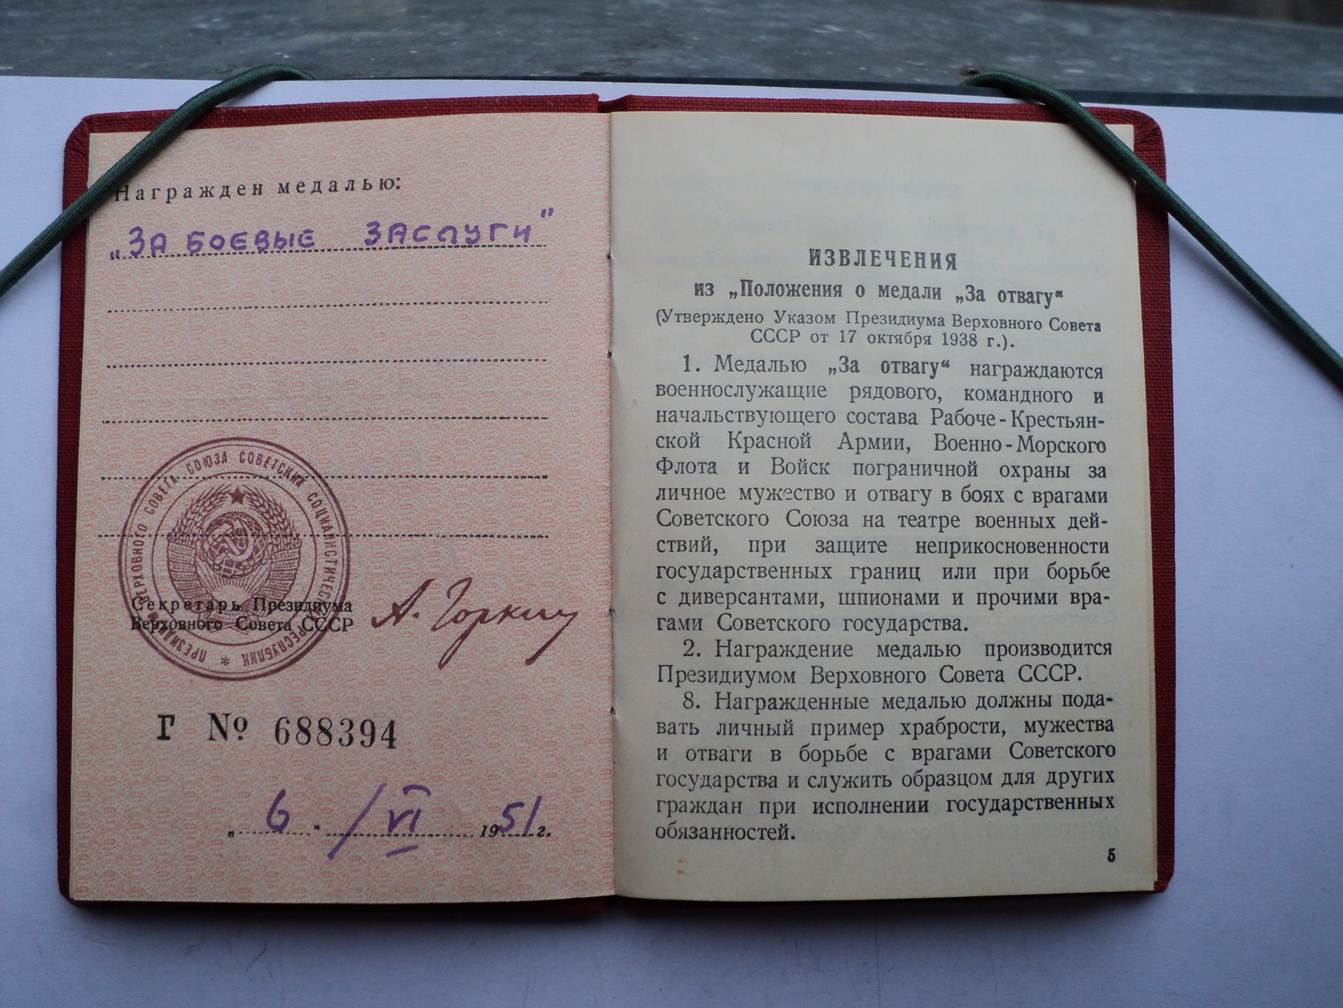 Награжден медалью:
„ЗА БОЕВЫЕ ЗАСЛУГИ"
ПРЕЗИДИУМ ВЕРХОВНОГО СОВЕТА СОЮЗА СОВЕТСКИХ СОЦИАЛИСТИЧЕСКИХ РЕСПУБЛИК *
Секретарь Президиума
Верховного Совета СССР
А. Горкин
Г № 688394
„ 6 " / VI 1951 г.
ИЗВЛЕЧЕНИЯ
из „Положения о медали „За отвагу“
(Утверждено Указом Президиума Верховного Совета
СССР от 17 октября 1938 г.).
1. Медалью „За отвагу“ награждаются
военнослужащие рядового, командного и
начальствующего состава Рабоче-Крестьян-
ской Красной Армии, Военно-Морского
Флота и Войск пограничной охраны за
личное мужество и отвагу в боях с врагами
Советского Союза на театре военных дей-
ствий, при защите неприкосновенности
государственных границ или при борьбе
с диверсантами, шпионами и прочими вра-
гами Советского государства.
2. Награждение медалью производится
Президиумом Верховного Совета СССР.
8. Награжденные медалью должны пода-
вать личный пример храбрости, мужества
и отваги в борьбе с врагами Советского
государства и служить образцом для других
граждан при исполнении государственных
обязанностей.
5